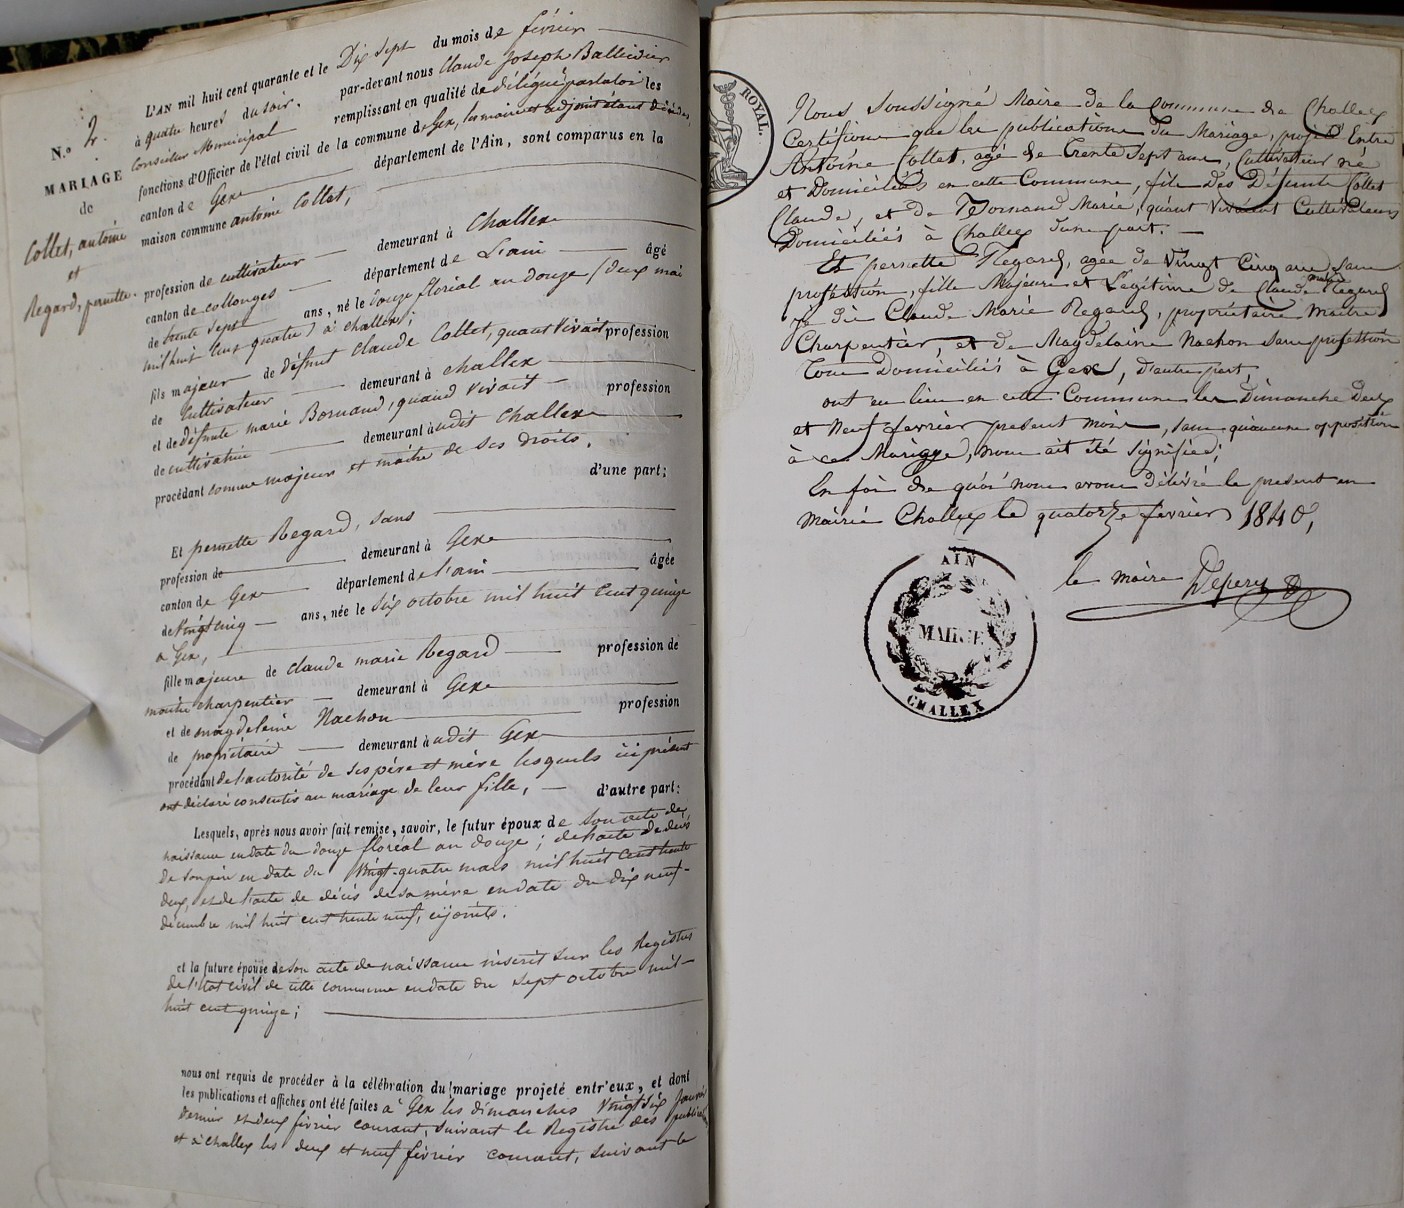 N.o 2.
MARIAGE
de
Collet, antoine
et
Regard, pernette.
L'AN mil huit cent quarante et le Dix sept du mois de février
à quatre heures du soir. par-devant nous Claude Joseph Ballivier
Conseiller Municipal remplissant en qualité de délégué par la loi les
fonctions d'Officier de l'état civil de la commune de Gex, les maire et adjoint étant décédés,
canton de Gex département de l'Ain, sont comparus en la
maison commune antoine Collet,
profession de cultivateur demeurant à Challex
canton de collonges département de L'ain âgé
de trente sept ans, né le douze floréal an douze (deux mai
mil huit cent quatre) à challex;
fils majeur de défunt Claude Collet, quant vivait profession
de Cultivateur demeurant à challex
et de défunte marie Bornand, quand vivait profession
de cultivatrice demeurant audit Challex
procédant comme majeur et maître de ses droits.
d'une part;
Et pernette Regard, sans
profession de demeurant à Gex
canton de Gex département de l'ain âgée
de vingt cinq ans, née le six octobre mil huit cent quinze
à Gex,
fille majeure de claude marie Regard profession de
maître charpentier demeurant à Gex
et de magdeleine Nachon profession
de propriétaire demeurant audit Gex
procédant de l'autorité de ses père et mère lesquels ici présent
ont déclaré consentir au mariage de leur fille, d'autre part:
Lesquels, après nous avoir fait remise, savoir, le futur époux de son acte de
naissance en date du douze floréal an douze; de l'acte de décès
de son père en date du vingt-quatre mars mil huit cent trente
deux, et de l'acte de décès de sa mère en date du dix neuf
décembre mil huit cent trente neuf, cijoints.
et la future épouse de son acte de naissance inscrit sur les Registres
de l'état civil de cette commune en date du sept octobre mil
huit cent quinze;
nous ont requis de procéder à la célébration du mariage projeté entr'eux, et dont
les publications et affiches ont été faites à Gex les dimanches vingt six Janvier
dernier et deux février courant, suivant le Registre des publications
et à challex les deux et neuf février courant, suivant le
ROYAL.
Nous soussigné Maire de la Commune de Challex
Certifions que les publications du Mariage, projeté Entre
Antoine Collet, agé de trente sept ans, Cultivateur né
et Domiciliés en cette Commune, fils des Défunts Collet
Claude, et de Bornand Marie, quant vivaient Cultivateurs
Domiciliés à Challex d'une part.
Et pernette Regard, agée de vingt cinq ans, sans
profession, fille Majeure et Légitime de Claude marie Regard
Je dis Claude Marie Regard, propriétaire Maître
Charpentier, et de Magdelaine Nachon sans profession
tous Domiciliés à Gex, d'autre part,
ont eu lieu en cette Commune les Dimanche Deux
et Neuf février présent mois, sans qu'aucune opposition
à ce Mariage, nous ait été signifiée;
En foi de quoi nous avons délivré le présent en
Mairie Challex le quatorze février 1840,
le maire Depery
AIN
MAIRIE
CHALLEX